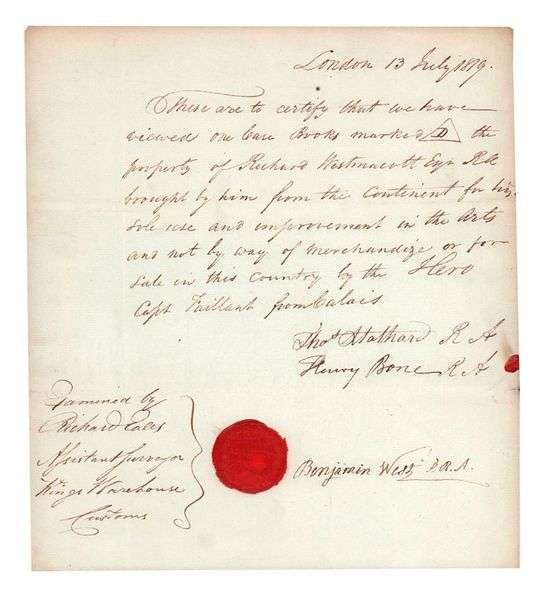 London 13 July 1819.
These are to certify that we have
viewed one Case Books marked D the
property of Richard Westmacott Esqr RA
brought by him from the Continent for his
sole use and improvement in the Arts
and not by way of Merchandize or for
sale in this Country by the Hero
Capt Vaillant from Calais
Thos. Stothard R A
Henry Bone R A
Benjamin West P.R.A.
Examined by
Richard
Assistant Surveyor
Kings Warehouse
Customs